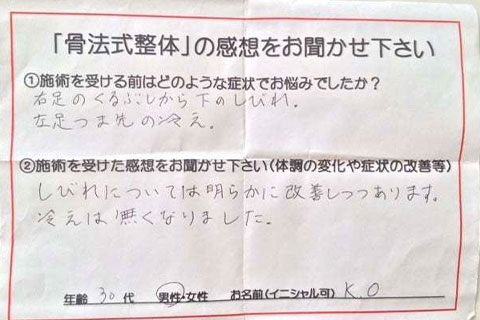 「骨法式整体」の感想をお聞かせ下さい
①施術を受ける前はどのような症状でお悩みでしたか？
右足のくるぶしから下のしびれ。
左足つま先の冷え。
②施術を受けた感想をお聞かせ下さい(体調の変化や症状の改善等)
しびれについては明らかに改善しつつあります。
冷えは無くなりました。
年齢 30代 男性・女性 お名前(イニシャル可) K.O